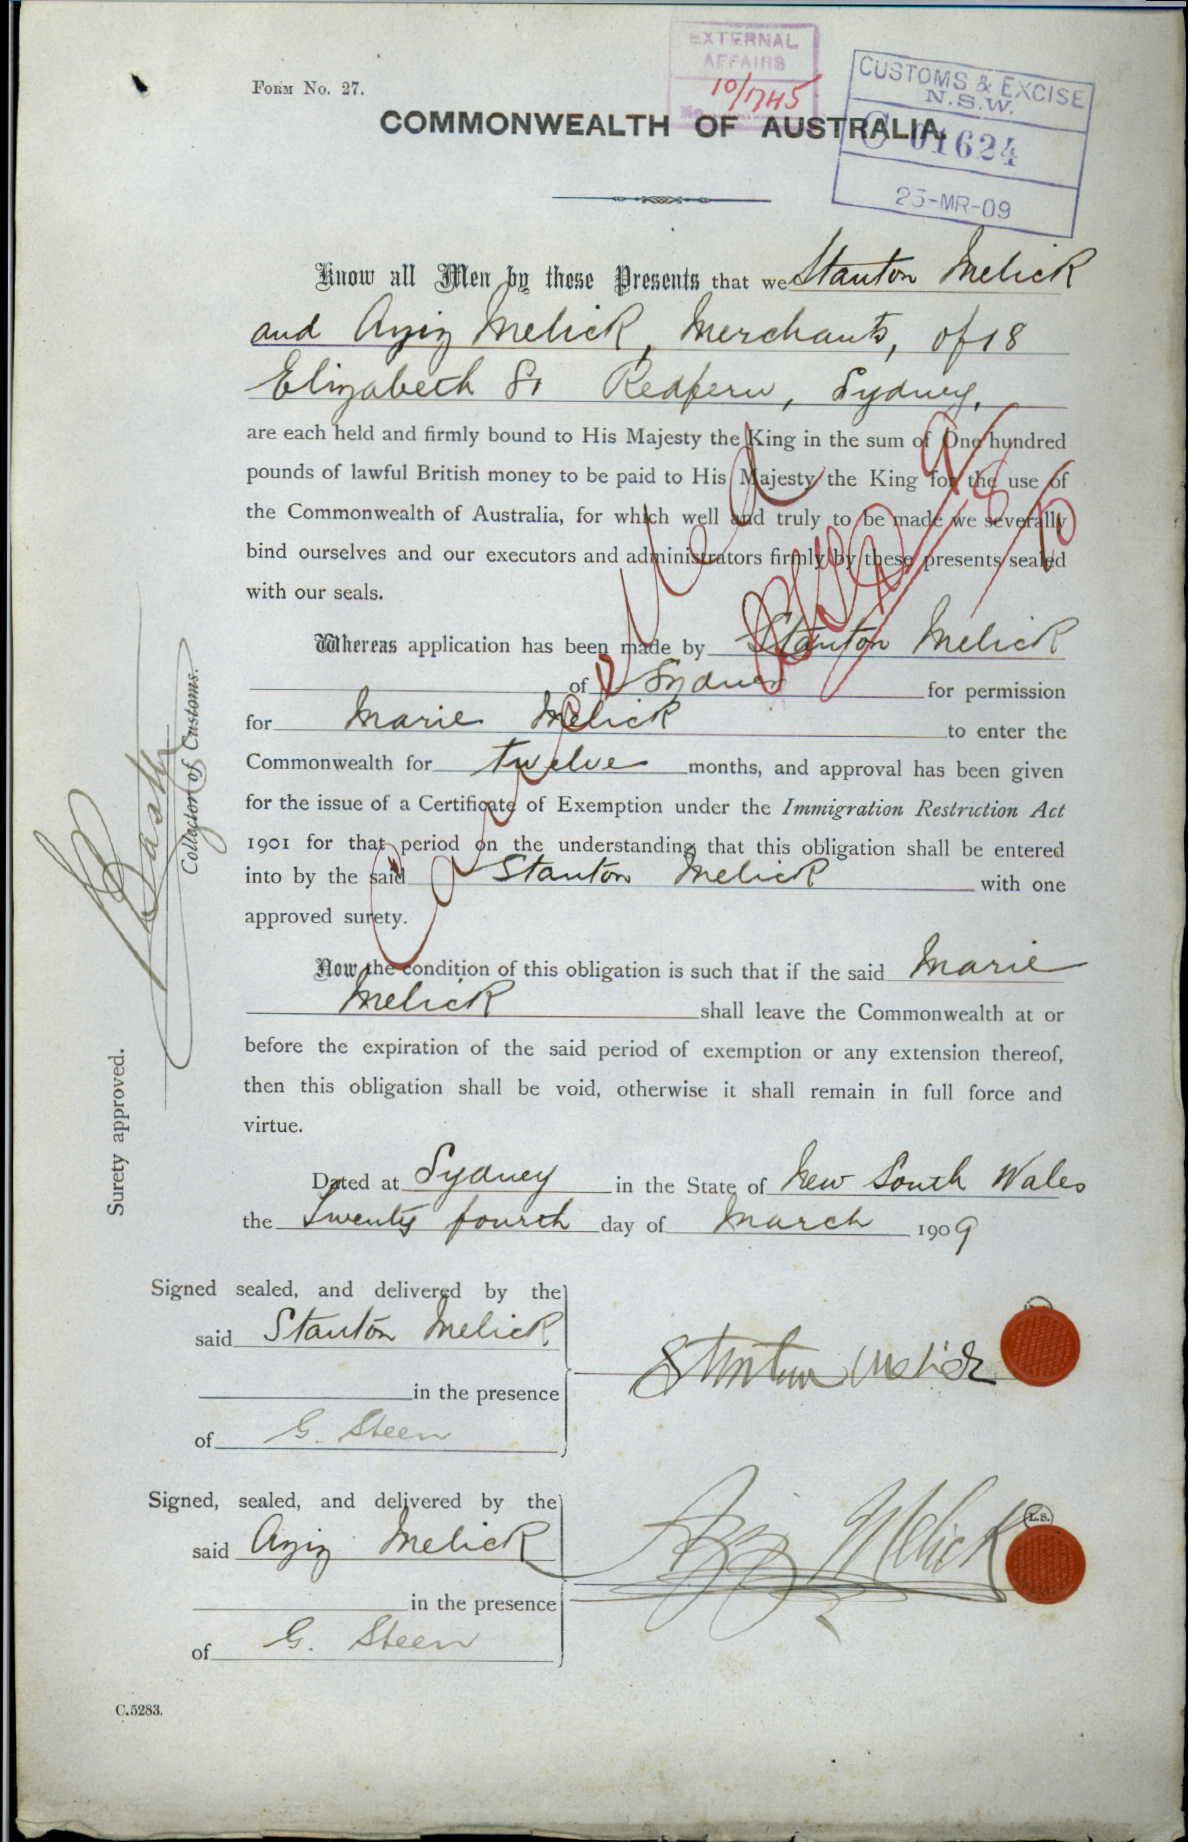 EXTERNAL
AFFAIRS
10/1745
No.
CUSTOMS & EXCISE
N.S.W.
C 01624
25-MR-09
Form No. 27.
COMMONWEALTH OF AUSTRALIA.
Know all Men by these Presents that we Stanton Melick
and Aziz Melick, Merchants, of 18
Elizabeth St Redfern, Sydney,
are each held and firmly bound to His Majesty the King in the sum of One hundred
pounds of lawful British money to be paid to His Majesty the King for the use of
the Commonwealth of Australia, for which well and truly to be made we severally
bind ourselves and our executors and administrators firmly by these presents sealed
with our seals.
Whereas application has been made by Stanton Melick
of Sydney for permission
for Marie Melick to enter the
Commonwealth for twelve months, and approval has been given
for the issue of a Certificate of Exemption under the Immigration Restriction Act
1901 for that period on the understanding that this obligation shall be entered
into by the said Stanton Melick with one
approved surety.
Now the condition of this obligation is such that if the said Marie
Melick shall leave the Commonwealth at or
before the expiration of the said period of exemption or any extension thereof,
then this obligation shall be void, otherwise it shall remain in full force and
virtue.
Dated at Sydney in the State of New South Wales
the Twenty fourth day of March 1909
Signed sealed, and delivered by the
said Stanton Melick
in the presence
of G. Steen
Stanton Melick
Signed, sealed, and delivered by the
said Aziz Melick
in the presence
of G. Steen
Aziz Melick
L.S.
Surety approved.
Collector of Customs.
Cancelled
C.5283.